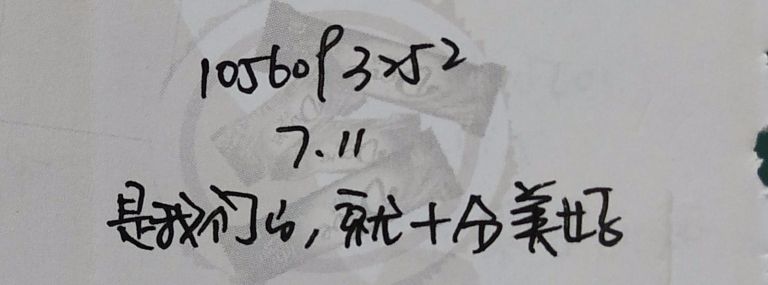 1056093252
7.11
是我们的，就十分美好